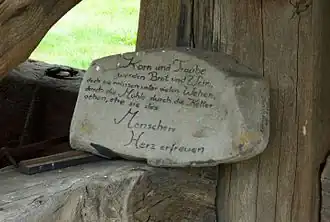 Korn und Traube
werden Brot und Wein,
doch sie müssen unter vielen Wehen
durch die Mühle durch die Kelter
gehen, ehe sie des
Menschen
Herz erfreuen